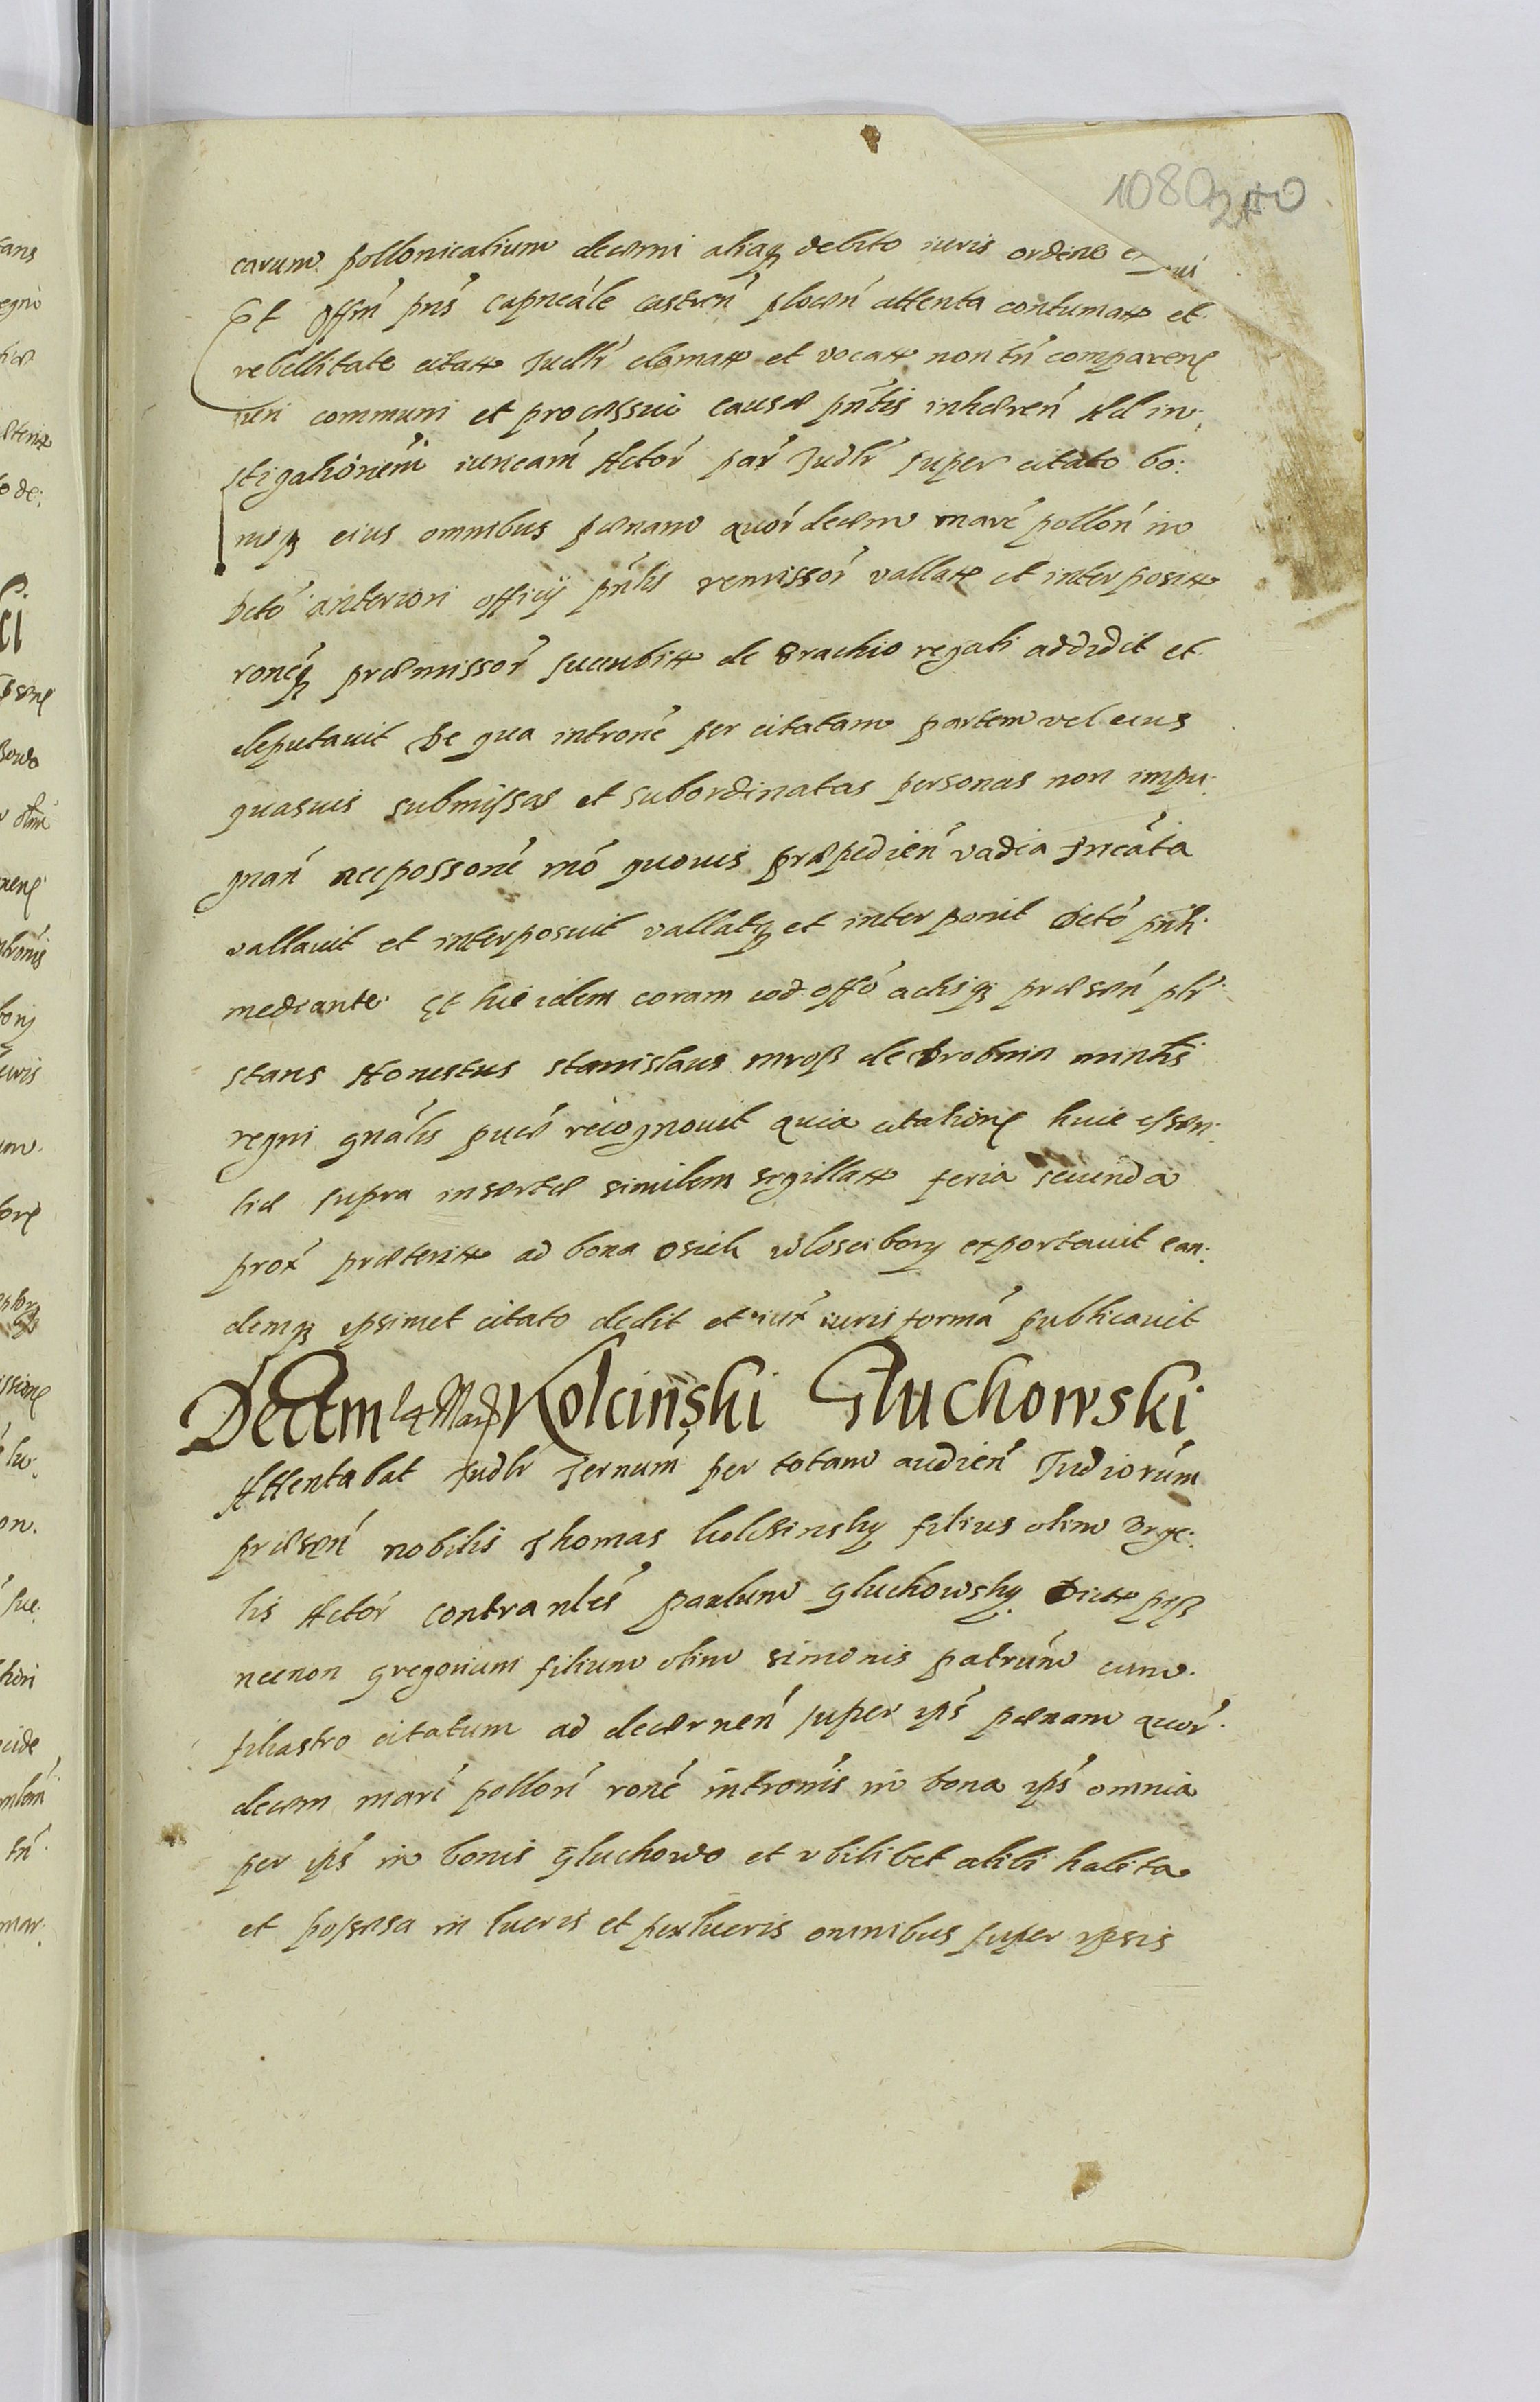 1080 240
carum pollonicalium decerni aliaq debito iuris ordine
Et Offm pns capneale castren plocen attenta contumax et
rebellitate citax Judlr clamax et vocax non tn comparen
iuri communi et processui causæ pntis inhæren Ad in:
stigationem iuncam Actor par Judlr super citato bo:
nisq eius omnibus pœnam quordecem marc pollon in
dcto anteriori officij pntis remissor vallax et interposix
roneq præmissor succubix de Brachio regali addidit et
deputavit De qua introne per citatam partem vel eius
quasuis submissas et subordinatas personas non impu:
gnan nec possone mo quouis præpedien vadia Incata
vallauit et interposuit vallatq et interponit dcto pnti
mediante Et hic idem coram eod offo actisq præsen plr
stans Honestus Stanislaus mroß de Drobnin minlis
regni gnalis puce recognouit quia citatione huic essen:
tiæ supra insertæ similem sigillax feria secunda
prox præterix ad bona osiek wlosciborz exportauit ean:
demq ipsimet citato dedit et iux iuris forma publicauit
Decem 14 Març Kolcinski Gluchowski
Attentabat Judlr Ternum per totam audien Judiorum
præsen nobilis Thomas kolcsinsky filius olim
lis Actor contra nles paulum gluchowsky
necnon gregorium filium olim simonis patrum cum
filiastro citatum ad decernen super ips pœnam quor
decem marc pollon rone intronis in bona ips omnia
per ips in bonis gluchowo et vbilibet alibi habita
et possessa in lucris et perlucris omnibus super ipsis